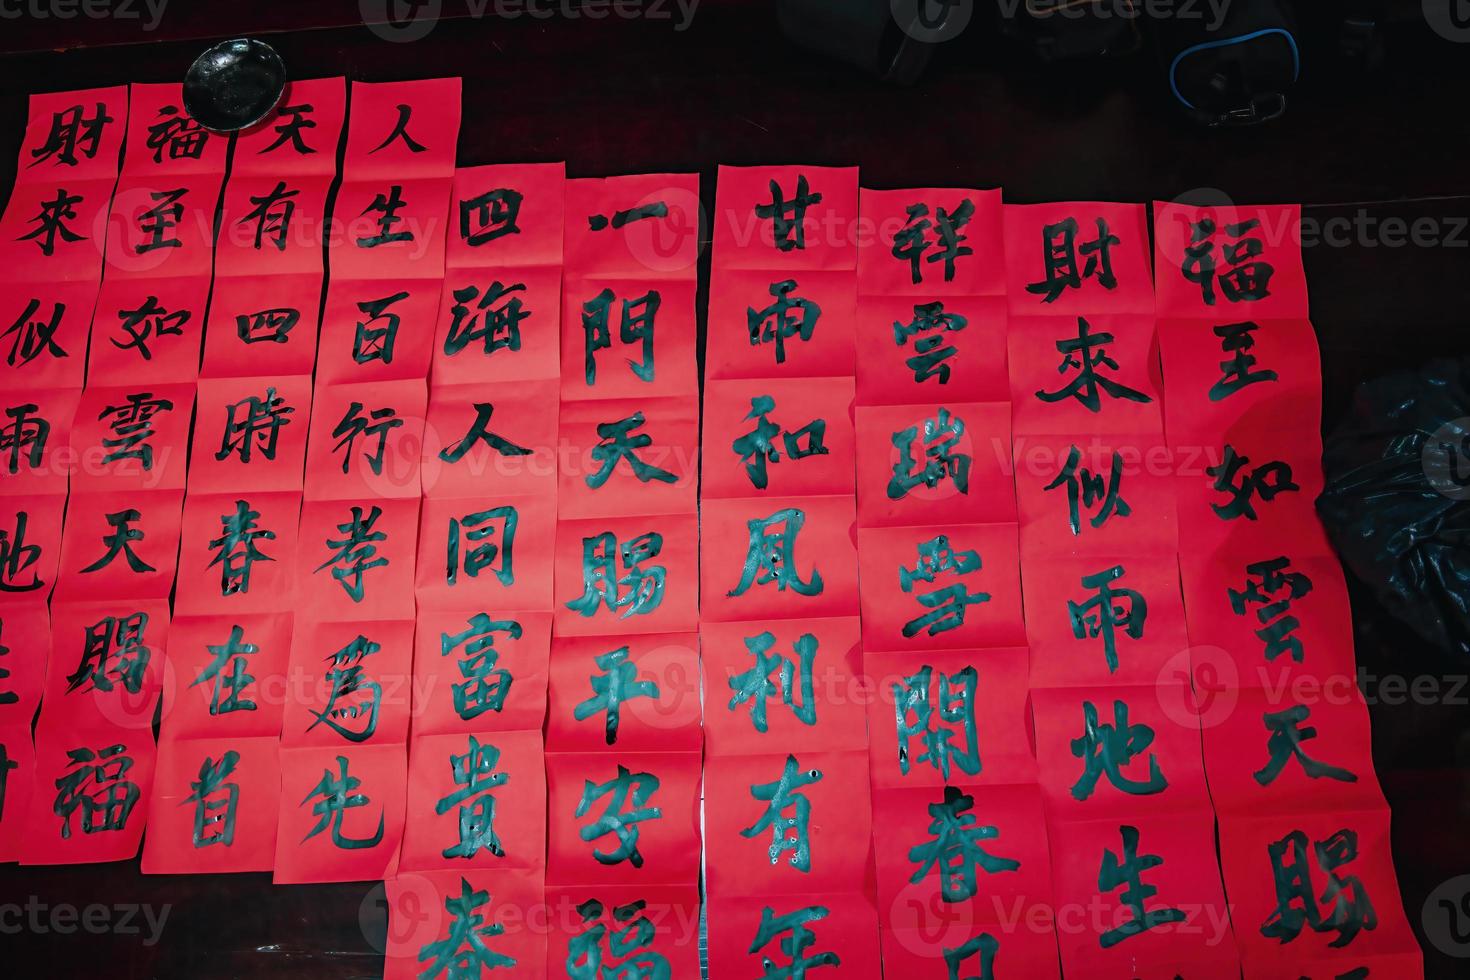 福至如雲天賜
財來似雨地生
祥雲瑞雪開春日
甘雨和風利有年
一門天賜平安福
四海人同富貴春
人生百行孝爲先
天有四時春在首
福至如雲天賜福
財來似雨地生
Vecteezy